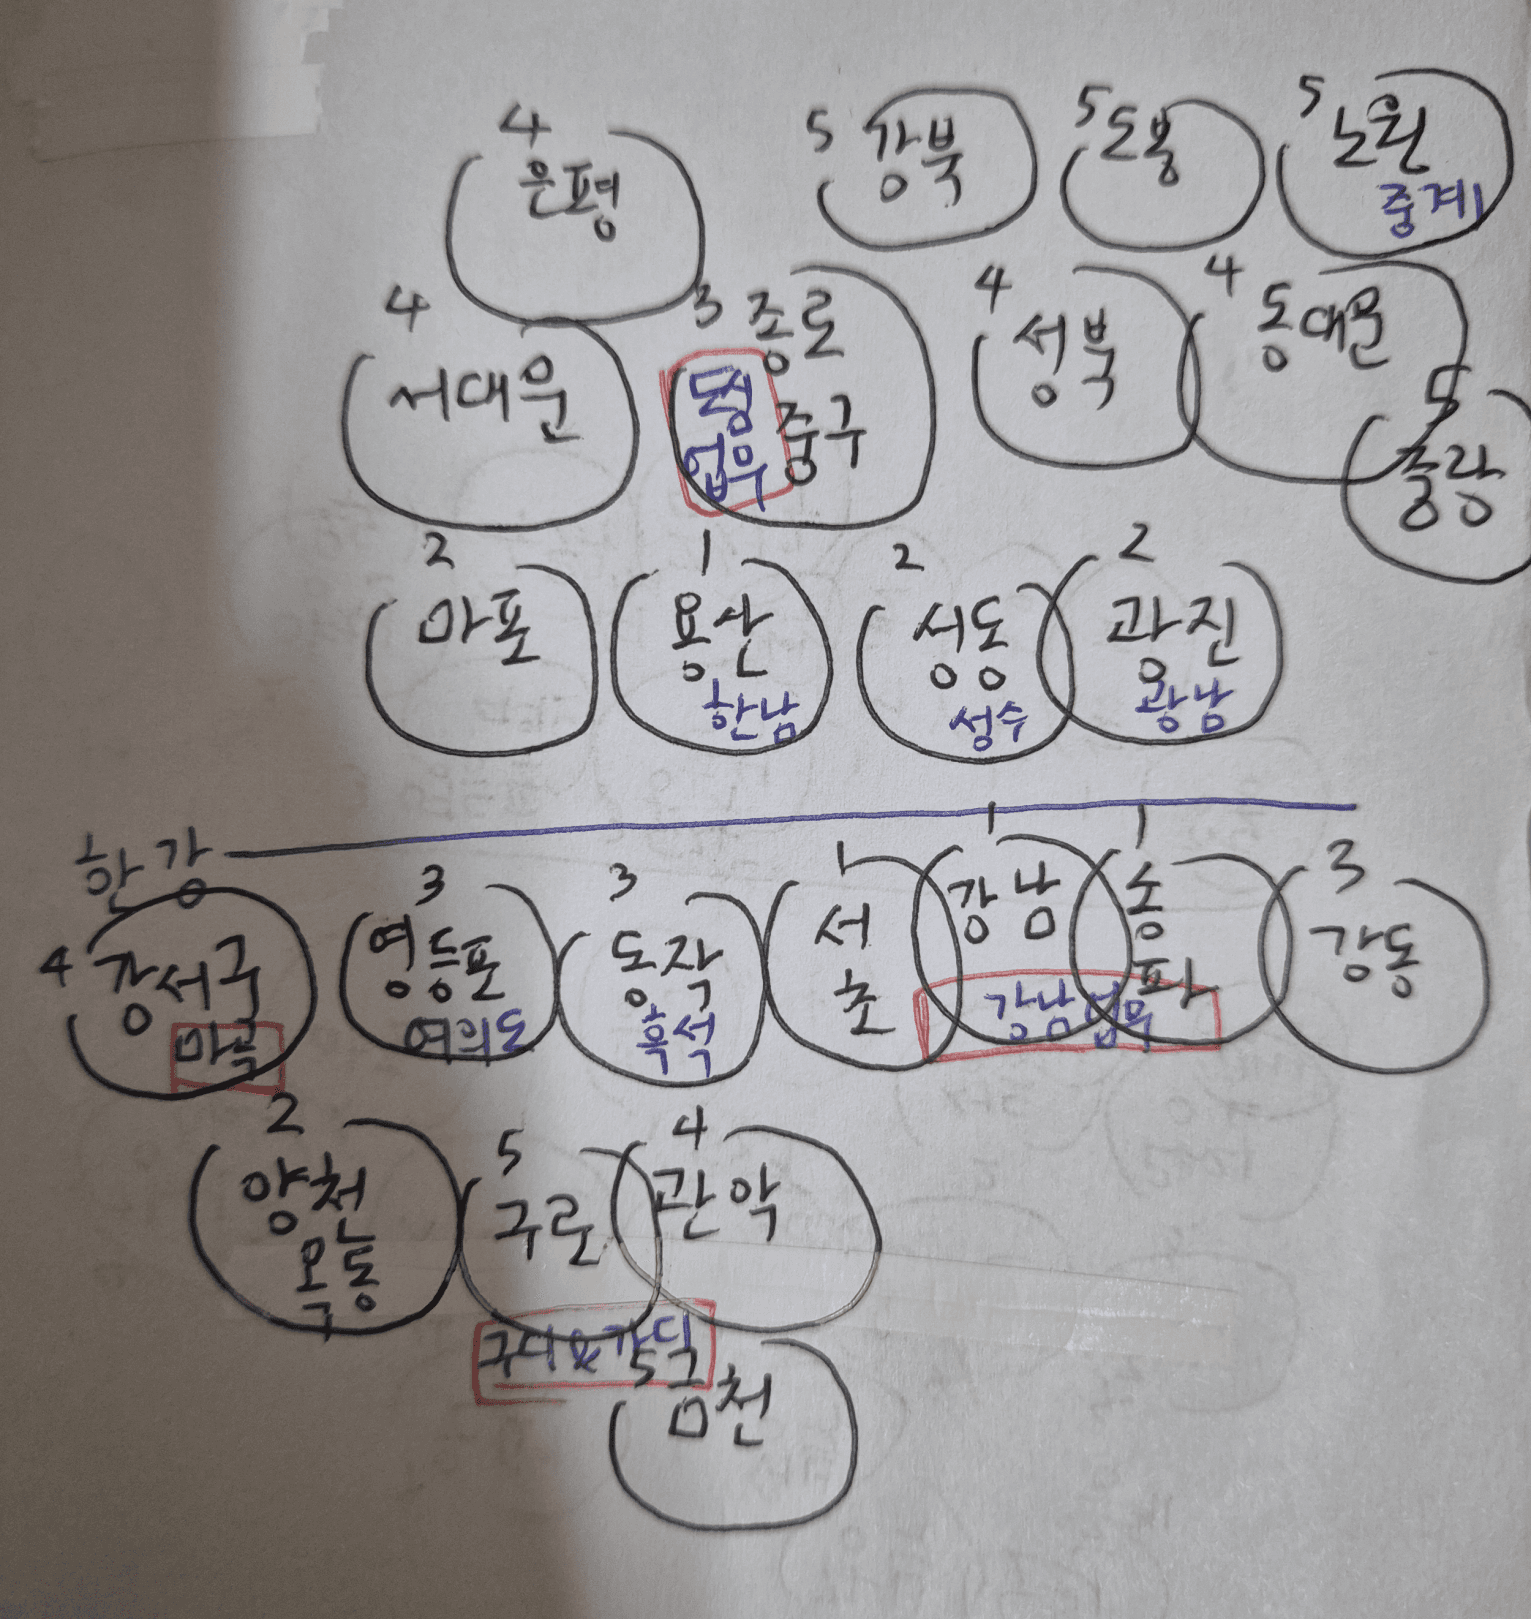 4
은평
5 강북
5 도봉
5 노원
중계
4
서대문
3 종로
중구
도심
업무
4
성북
4
동대문
5
중랑
2
마포
1
용산
한남
2
성동
성수
2
광진
광남
한강
4 강서구
마곡
3
영등포
여의도
3
동작
흑석
1
서
초
1
강남
강남업무
1
송
파
3
강동
2
양천
목동
5
구로
4
관악
구디&가디
5 금천